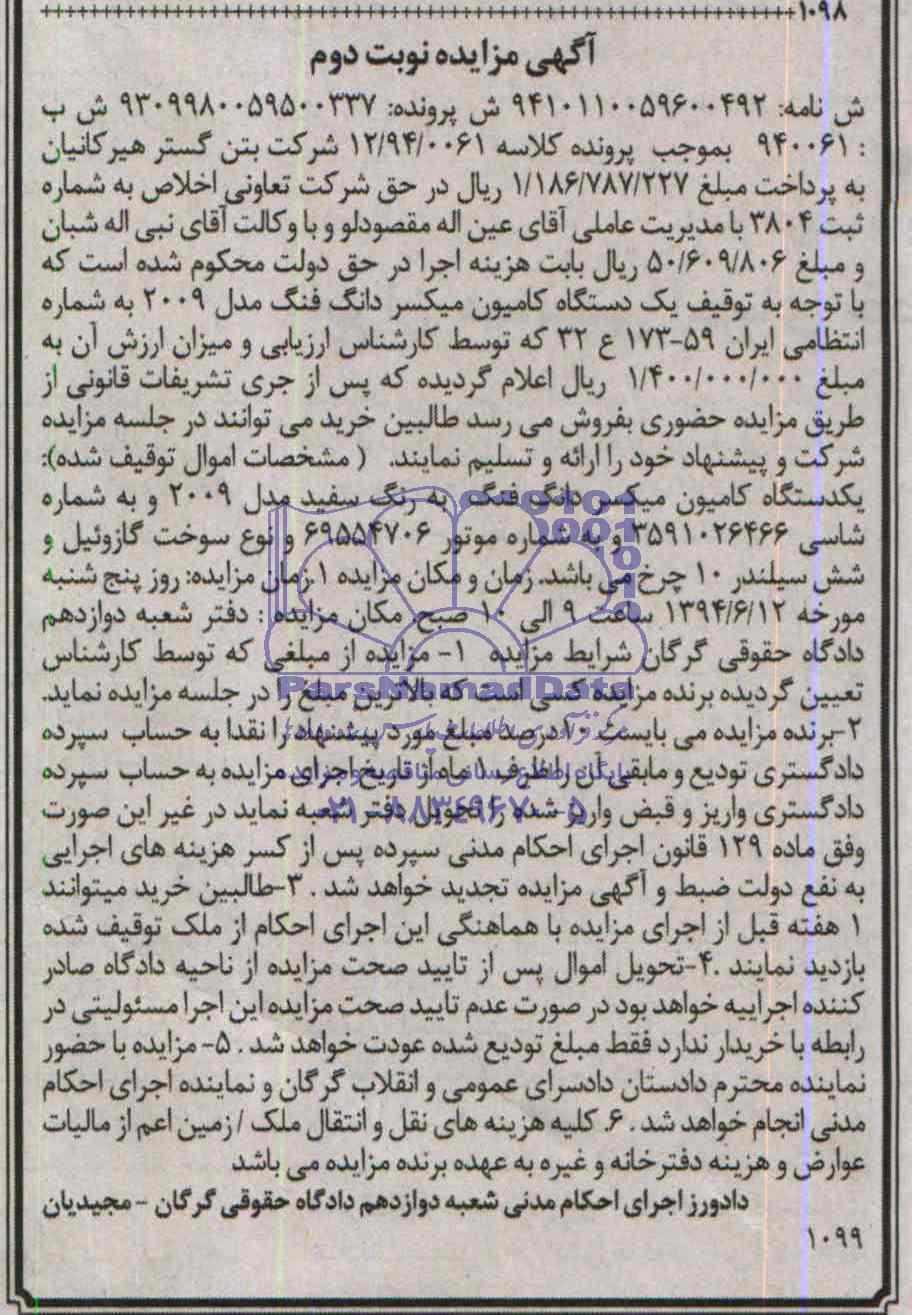 ۱۰۹۸
آگهی مزایده نوبت دوم
ش نامه: ۹۴۱۰۱۱۰۰۵۹۶۰۰۴۹۲ ش پرونده: ۹۳۰۹۹۸۰۰۵۹۵۰۰۳۳۷ ش ب
: ۹۴۰۰۶۱ بموجب پرونده کلاسه ۱۲/۹۴/۰۰۶۱ شرکت بتن گستر هیرکانیان
به پرداخت مبلغ ۱/۱۸۶/۷۸۷/۲۲۷ ریال در حق شرکت تعاونی اخلاص به شماره
ثبت ۳۸۰۴ با مدیریت عاملی آقای عین اله مقصودلو و با وکالت آقای نبی اله شبان
و مبلغ ۵۰/۶۰۹/۸۰۶ ریال بابت هزینه اجرا در حق دولت محکوم شده است که
با توجه به توقیف یک دستگاه کامیون میکسر دانگ فنگ مدل ۲۰۰۹ به شماره
انتظامی ایران ۵۹-۱۷۳ ع ۳۲ که توسط کارشناس ارزیابی و میزان ارزش آن به
مبلغ ۱/۴۰۰/۰۰۰/۰۰۰ ریال اعلام گردیده که پس از جری تشریفات قانونی از
طریق مزایده حضوری بفروش می رسد طالبین خرید می توانند در جلسه مزایده
شرکت و پیشنهاد خود را ارائه و تسلیم نمایند. ( مشخصات اموال توقیف شده):
یکدستگاه کامیون میکسر دانگ فنگ به رنگ سفید مدل ۲۰۰۹ و به شماره
شاسی ۳۵۹۱۰۲۶۴۶۶ و به شماره موتور ۶۹۵۵۴۷۰۶ و نوع سوخت گازوئیل و
شش سیلندر ۱۰ چرخ می باشد. زمان و مکان مزایده ۱.زمان مزایده: روز پنج شنبه
مورخه ۱۳۹۴/۶/۱۲ ساعت ۹ الی ۱۰ صبح. مکان مزایده : دفتر شعبه دوازدهم
دادگاه حقوقی گرگان شرایط مزایده ۱- مزایده از مبلغی که توسط کارشناس
تعیین گردیده برنده مزایده کسی است که بالاترین مبلغ را در جلسه مزایده نماید.
ParsNamadData
۲-برنده مزایده می بایست ۱۰ درصد مبلغ مورد پیشنهاد را نقدا به حساب سپرده
دادگستری تودیع و مابقی آن را ظرف ۱ ماه از تاریخ اجرای مزایده به حساب سپرده
دادگستری واریز و قبض واریز شده را تحویل دفتر شعبه نماید در غیر این صورت
۰۲۱-۸۸۳۴۹۶۷۰-۵
وفق ماده ۱۲۹ قانون اجرای احکام مدنی سپرده پس از کسر هزینه های اجرایی
به نفع دولت ضبط و آگهی مزایده تجدید خواهد شد . ۳-طالبین خرید میتوانند
۱ هفته قبل از اجرای مزایده با هماهنگی این اجرای احکام از ملک توقیف شده
بازدید نمایند .۴-تحویل اموال پس از تایید صحت مزایده از ناحیه دادگاه صادر
کننده اجراییه خواهد بود در صورت عدم تایید صحت مزایده این اجرا مسئولیتی در
رابطه با خریدار ندارد فقط مبلغ تودیع شده عودت خواهد شد . ۵- مزایده با حضور
نماینده محترم دادستان دادسرای عمومی و انقلاب گرگان و نماینده اجرای احکام
مدنی انجام خواهد شد . ۶. کلیه هزینه های نقل و انتقال ملک / زمین اعم از مالیات
عوارض و هزینه دفترخانه و غیره به عهده برنده مزایده می باشد
دادورز اجرای احکام مدنی شعبه دوازدهم دادگاه حقوقی گرگان - مجیدیان
۱۰۹۹